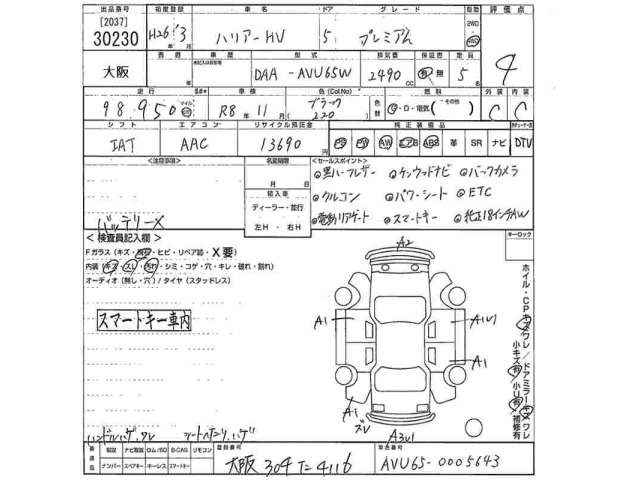 出品番号 初度登録 車名 ドア グレード 駆動 評価点
[2037] 30230 H26 年 3 月 ハリアーHV 5 プレミアム 2WD 4WD 4
大阪 車歴 型式 排気量 保証書 定員
DAA-AVU65W 2490 CC 有・無 5 名
走行 車検 色(Col.No) 色替 燃料 外装 内装
98,950 マイル km R8 年 11 月 ブラック 220 G・D・電気 (その他) C C
シフト エアコン リサイクル預託金 純正装備品
IAT AAC 13690 円 PS PW AW エアB ABS 革 SR ナビ DTV
<注意事項> 名変期限 <セールスポイント>
月 日 黒ハーフレザー ケンウッドナビ バックカメラ
輸入車 クルコン パワーシート ETC
ディーラー・並行 電動リアゲート スマートキー 純正18インチAW
左H・右H
バッテリーX
<検査員記入欄> キーロック
Fガラス (キズ・飛石・ヒビ・リペア跡・X要)
内装 (キズ・スレ・汚れ・シミ・コゲ・穴・キレ・破れ・割れ)
オーディオ (無し・穴) / タイヤ (スタッドレス)
スマートキー車内
A2
A1 A1U1
A1
A1
スレ A3U1
ホイル・CPキズワレ/ドアミラーキズワレ
小キズ有 小U有 補修有
ハンドルハゲ、スレ シートへたり、ハゲ
遺造品 取説 ナビ取説 ロム/SD B-CAS リモコン 登録番号 車台番号
ナンバー スペアキー キーレス スマートキー 大阪 304 た 4116 AVU65-0005643